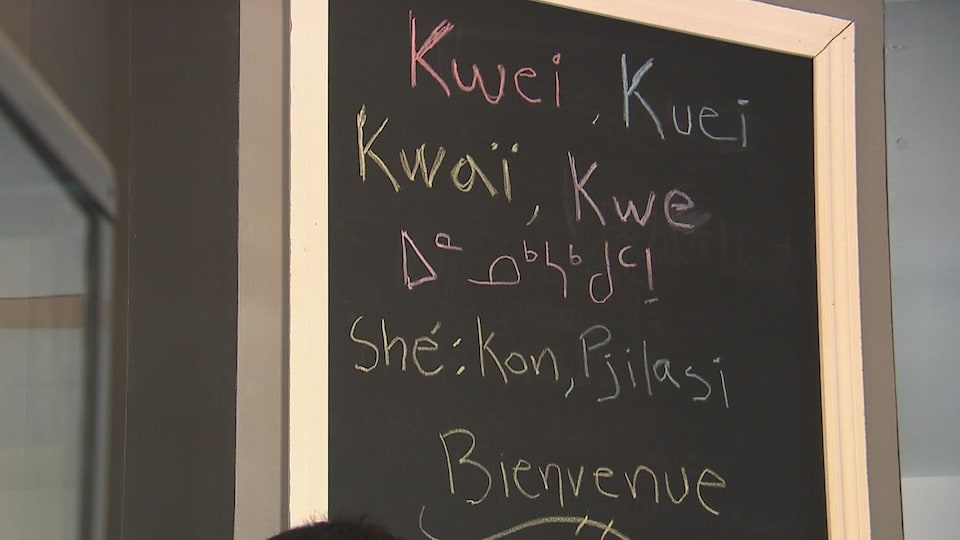 Kwei, Kuei
Kwaï, Kwe
ᐅᓐᓄᒃᓴᒃᑯᑦ!
Shé:kon, Pjilasi
Bienvenue